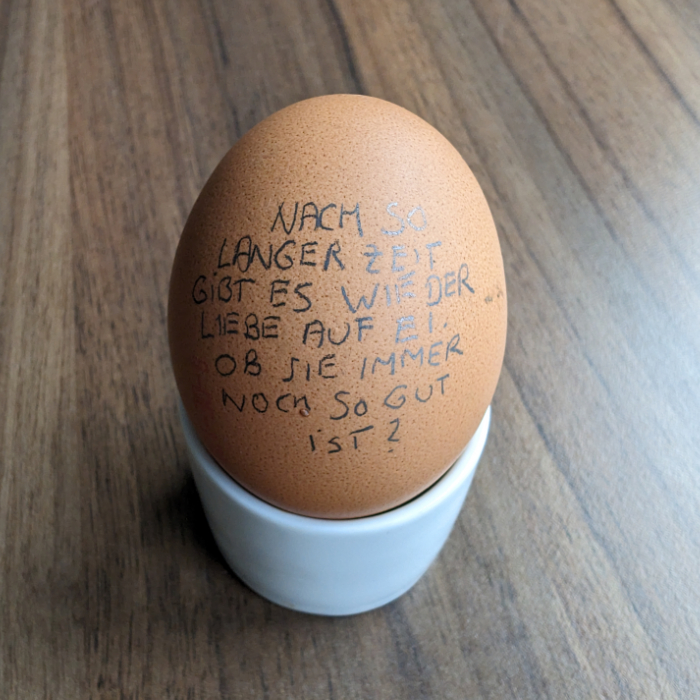 NACH SO
LANGER ZEIT
GIBT ES WIEDER
LIEBE AUF EI.
OB SIE IMMER
NOCH SO GUT
IST?